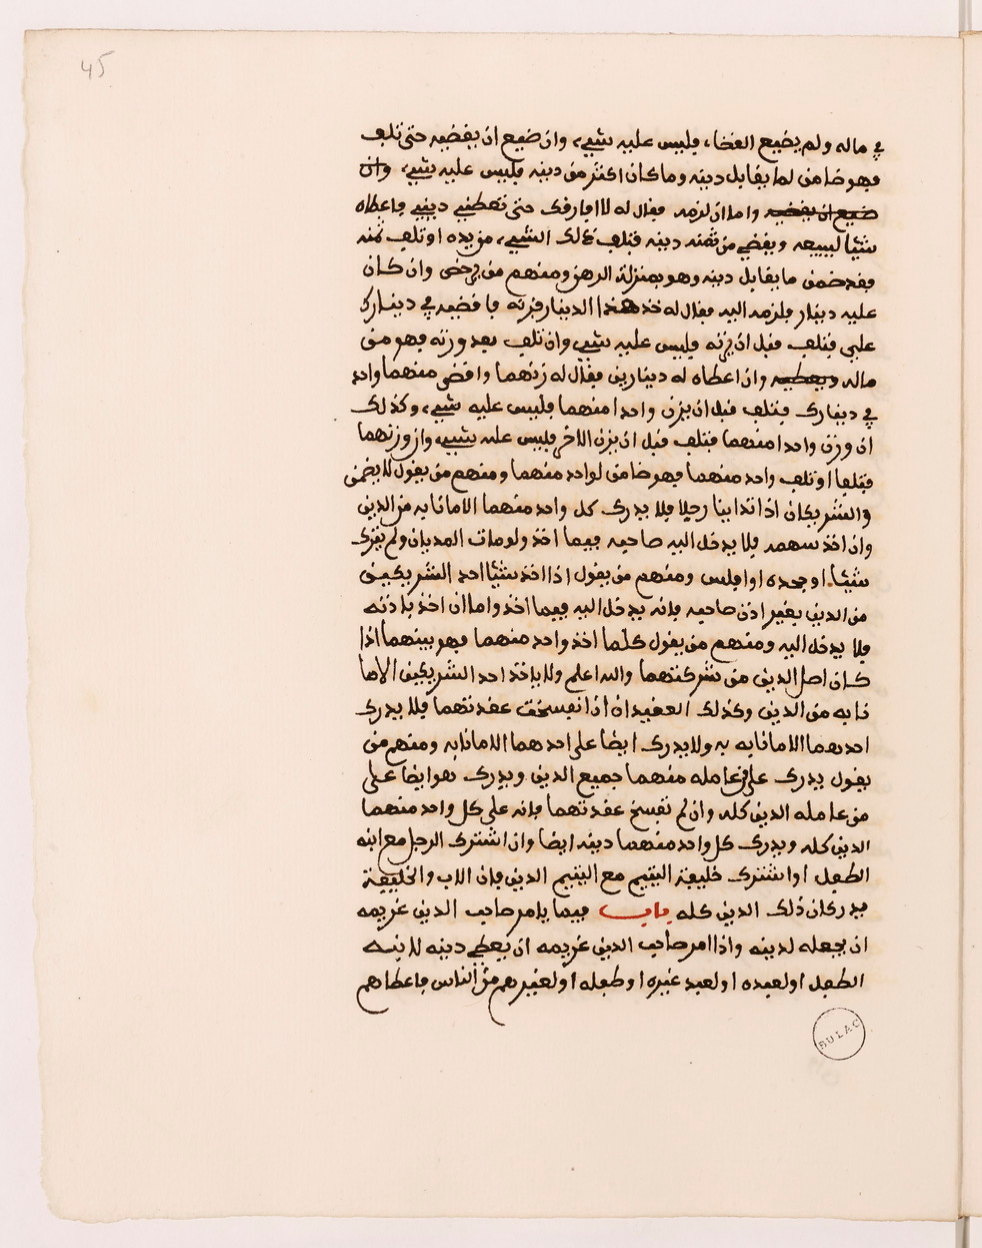 45
في ماله ولم يضيع القضاء فليس عليه شيء، وان ضيع ان يقضيه حتى تلف
فهو ضامن لما يقابل دينه وما كان اكثر من دينه فليس عليه شيء، وان
ضيع ان يقضيه واما ان لزمه فقال له لا افارقك حتى تعطيني ديني فاعطاه
شيئا ليبيعه ويقضي من ثمنه دينه فتلف ذلك الشيء، من يده او تلف ثمنه
فقد ضمن ما يقابل دينه وهو بمنزلة الرهن ومنهم من يرخص وان كان
عليه دينار فلزمه اليه فقال له خذ هذا الدينار فزنه فاقضيه في دينارك
علي فتلف قبل ان يزنه فليس عليه شيء وان تلف بعد وزنه فهو من
ماله ويعطيه وان اعطاه له دينارين فقال له زنهما واقض منهما واحد
في دينارك فتلف قبل ان يزن واحدا منهما فليس عليه شيء، وكذلك
ان وزن واحدا منهما فتلف قبل ان يزن الاخر فليس عليه شيء، وان وزنهما
فتلفا او تلف واحد منهما فهو ضامن لواحد منهما ومنهم من يقول لا يضمن
والشريكان اذا تداينا رجلا فلا يدرك كل واحد منهما الا مانابه من الدين
وان اخذ سهمه فلا يدخل اليه صاحبه فيما اخذ ولو مات المديان ولم يترك
شيئا او جحده او افلس ومنهم من يقول اذا اخذ شيئا احد الشريكين
من الدين بغير اذن صاحبه فانه يدخل اليه فيما اخذ واما ان اخذ باذنه
فلا يدخل اليه ومنهم من يقول كلما اخذ واحد منهما فهو بينهما اذا
كان اصل الدين من شركتهما والله اعلم ولا ياخذ احد الشريكين الا ما
نابه من الدين وكذلك العقيدان اذا انفسخت عقدتهما فلا يدرك
احدهما الا مانابه به ولا يدرك ايضا على احدهما الا مانابه ومنهم من
يقول يدرك على من عامله منهما جميع الدين ويدرك هو ايضا على
من عامله الدين كله وان لم تفسخ عقدتهما فانه على كل واحد منهما
الدين كله ويدرك كل واحد منهما دينه ايضا وان اشترك الرجل مع ابنه
الطفل او اشترك خليفة اليتيم مع اليتيم الدين فان الاب والخليفة
يدركان ذلك الدين كله باب فيما يامر صاحب الدين غريمه
ان يجعله لدينه واذا امر صاحب الدين غريمه ان يعطي دينه لابنه
الطفل او لعبده او لعبد غيره او طفله او لغيرهم من الناس فاعطاهم
BULAC